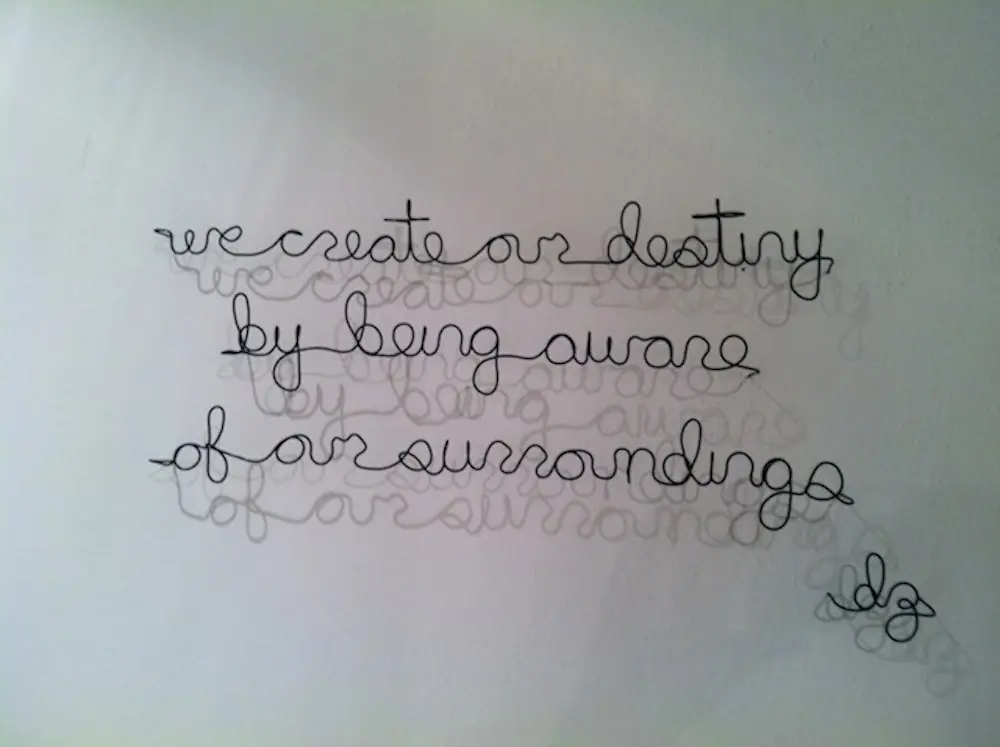 we create our destiny
by being aware
of our surroundings
dz